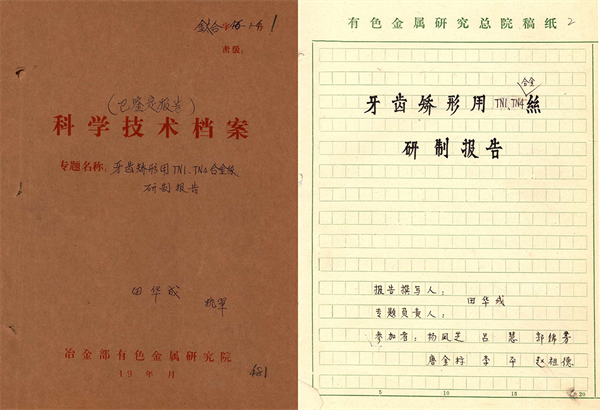 密级：
(已鉴定报告)
科学技术档案
专题名称：牙齿矫形用TN1、TN2合金丝
研制报告
田华成
冶金部有色金属研究院
19 年 月
有色金属研究总院稿纸
2
合金
牙齿矫形用TN1、TN2絲
研制报告
报告撰写人：
田华成
专题负责人：
参加者：杨凤芝 吕慧 郭锦芳
唐金科 李平 赵祖德
5 10 15 20